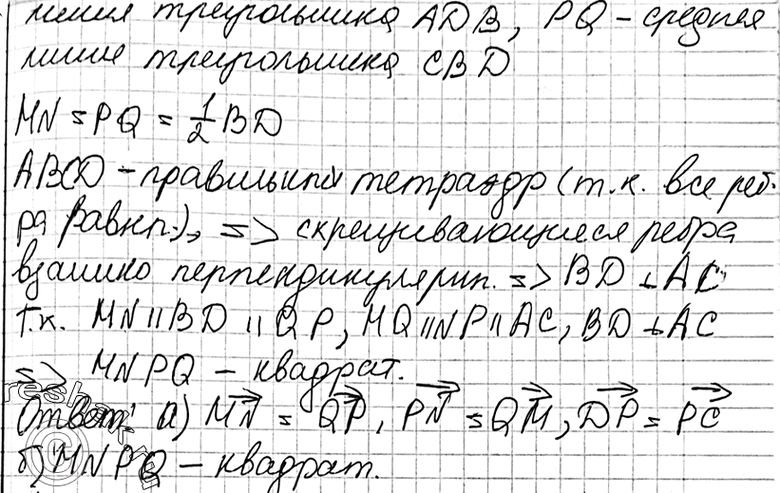 линия треугольника ADB, PQ – средняя
линия треугольника CBD
MN = PQ = 1/2 BD
ABCD – правильный тетраэдр (т.к. все реб-
ра равны), => скрещивающиеся ребра
взаимно перпендикулярн. => BD ⊥ AC
т.к. MN || BD || QP, MQ || NP || AC, BD ⊥ AC
=> MNPQ – квадрат.
Ответ: а) MN = QP, PN = QM, DP = PC
б) MNPQ – квадрат.